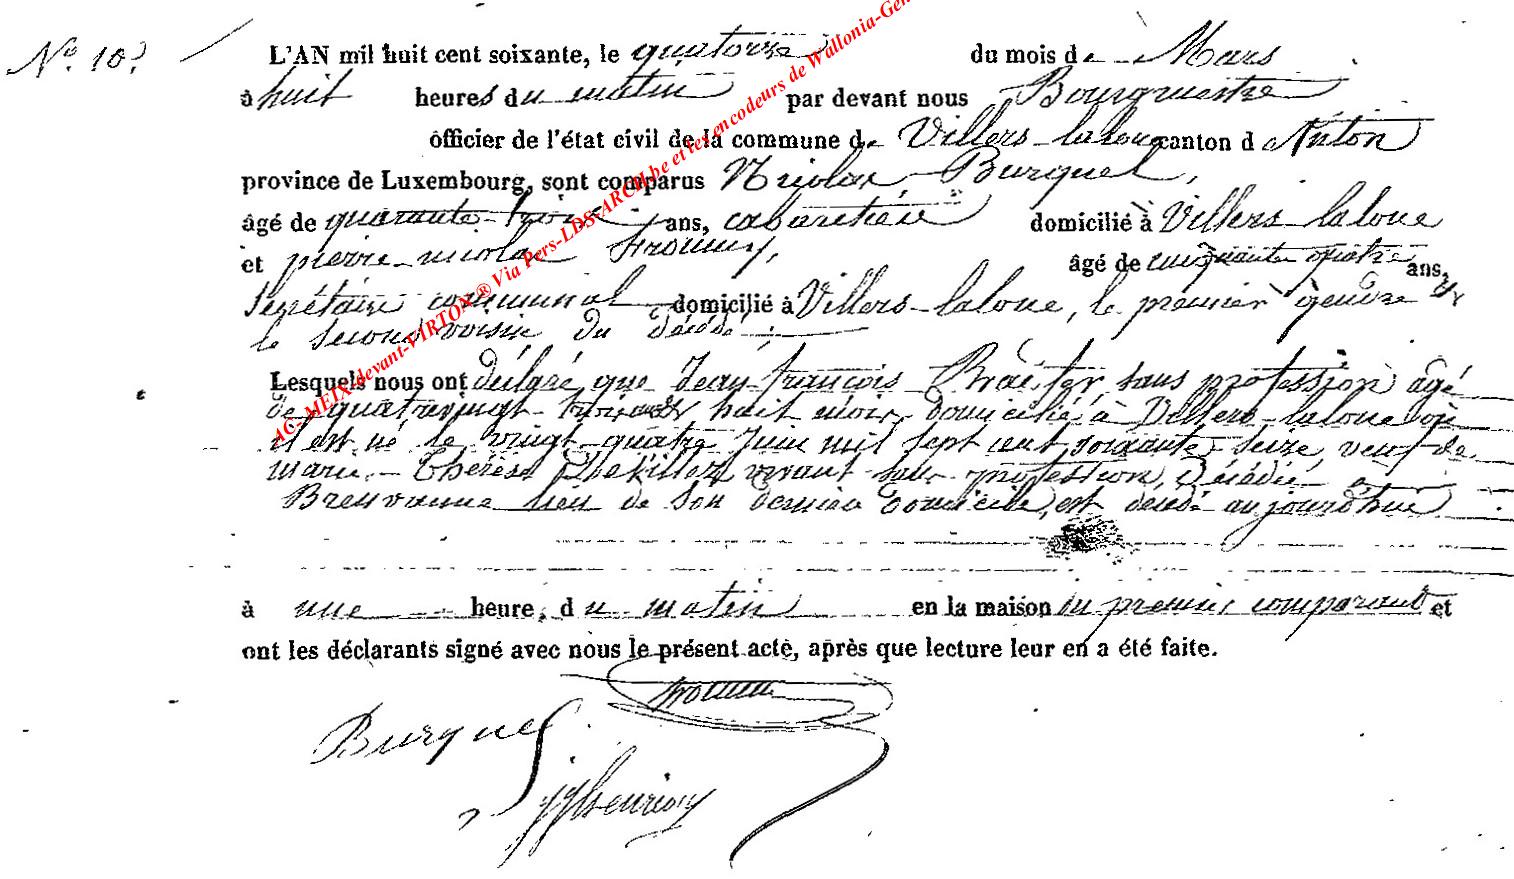 Nº 10.
L'AN mil huit cent soixante, le quatorze du mois de Mars
à huit heures du matin par devant nous Bourgmestre
officier de l'état civil de la commune de Villers-laloue canton d Anton
province de Luxembourg, sont comparus Nicolas Burquel,
âgé de quarante-trois ans, cabaretier domicilié à Villers laloue
et pierre nicolas âgé de cinquante quatre ans,
Secrétaire communal domicilié à Villers-laloue, le premier gendre et
le second voisin du décédé;
Lesquels nous ont déclaré que Jean-francois sans profession âgé
de quatrevingt-trois ans huit mois domicilié à Villers-laloue où
il est né le vingt-quatre Juin mil sept cent soixante-seize, veuf de
marie-Thérèse vivant sans profession, décédée à
Breuvanne lieu de son dernier domicile, est décédé aujourd'hui
à une heure, du matin en la maison du premier comparant et
ont les déclarants signé avec nous le présent acte, après que lecture leur en a été faite.
Burquel
AC-MEIX-devant-VIRTON ® Via Pers-LDS-ARCH.be et les encodeurs de Wallonia-Gen